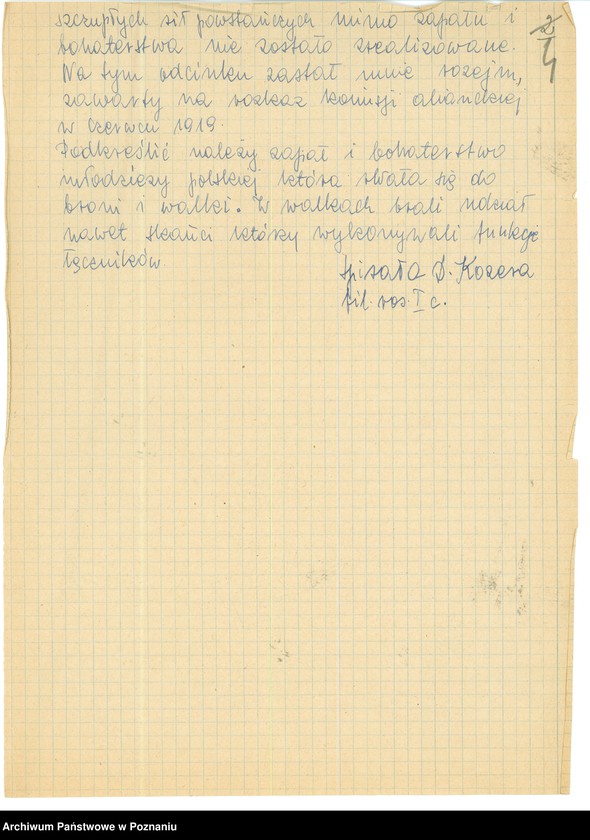 szczupłych sił powstańczych mimo zapału i
bohaterstwa nie zostało zrealizowane.
Na tym odcinku zastał mnie rozejm,
zawarty na rozkaz komisji alianckiej
w czerwcu 1919.
Podkreślić należy zapał i bohaterstwo
młodzieży polskiej która rwała się do
broni i walki. W walkach brali udział
nawet skauci którzy wykonywali funkcje
łączników.
Spisała D. Kozera
fil. ros. I c.
4
Archiwum Państwowe w Poznaniu